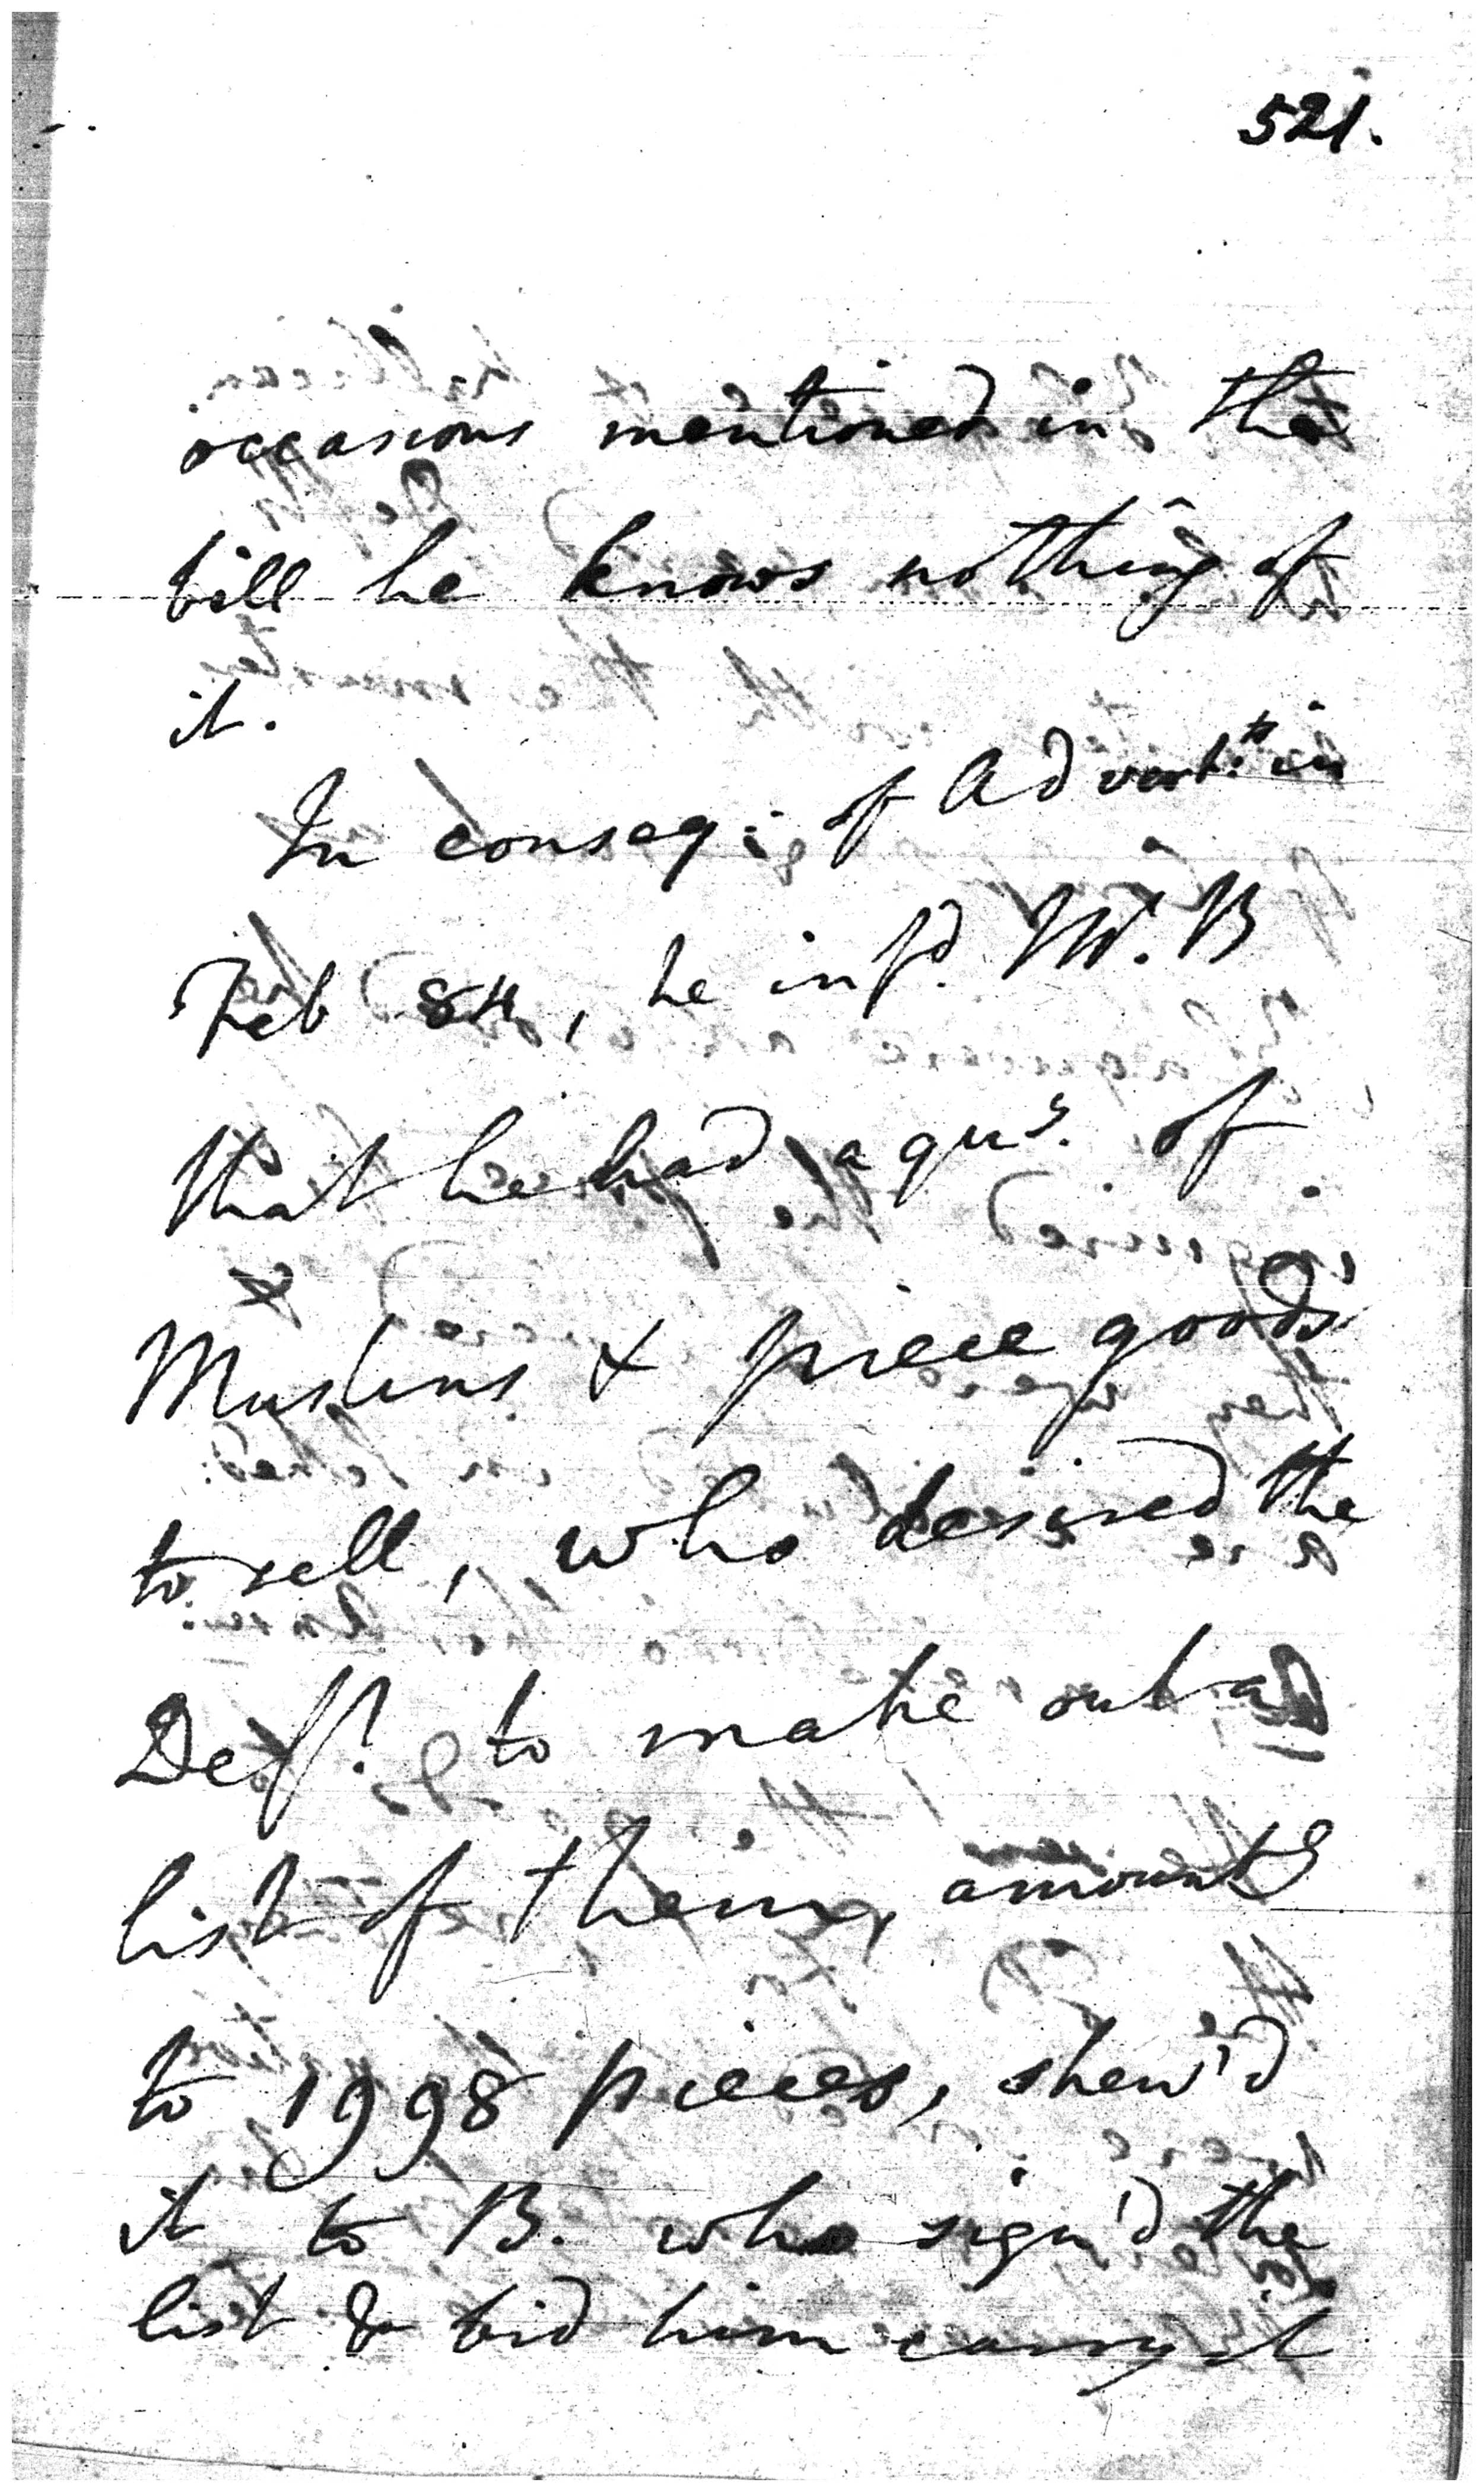 521.
occasions mentioned in the
bill he knows nothing of
it.
In conseq: of Advert.ts in
Feb 84, he inf'd. Mr. B
that he had a quy. of
Muslins & piece goods
to sell, who desired the
Deft. to make out a
list of them, amountg
to 1998 pieces, shew'd
it to B. who sign'd the
list & bid him carry it